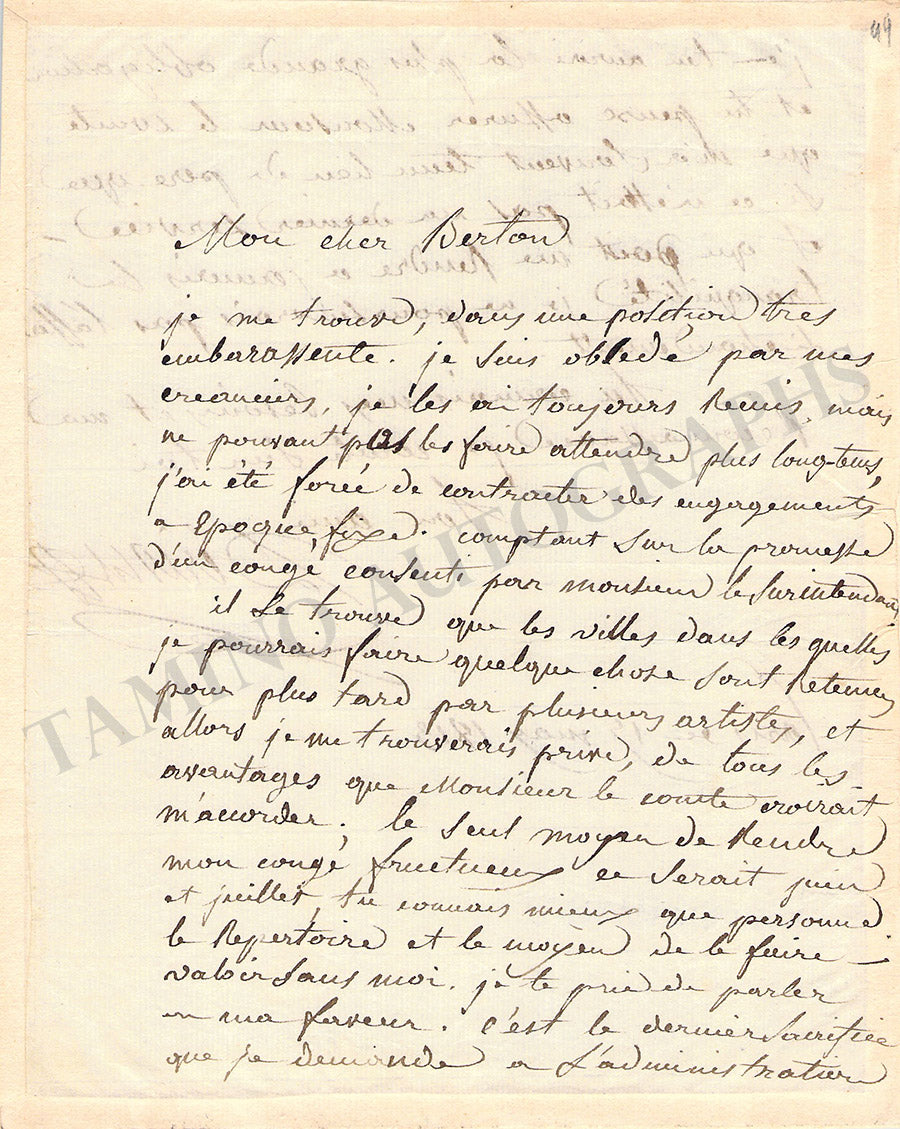 49
Mon cher Berton
je me trouve, dans une position tres
embarassente. je suis obsedé par mes
creanciers, je les ai toujours Remis, mais
ne pouvant pas les faire attendre plus long-tems,
j'ai été forcé de contracter des engagements
a Epoque fixe. comptant sur la promesse
d'un congé consenti par monsieur le Surintendant,
il se trouve que les villes dans les quelles
je pourrais faire quelque chose sont Retenues
pour plus tard par plusieurs artistes, et
allors je me trouverais privé, de tous les
avantages que Monsieur le comte croirait
m'accorder. le seul moyen de Rendre
mon congé fructueux ce serait juin
et juillet, tu connais mieux que personne
le Repertoire et le moyen de le faire
valoir sans moi. je te prie de parler
en ma faveur. c'est le dernier sacrifice
que je demande a L'administration
TAMINO AUTOGRAPHS